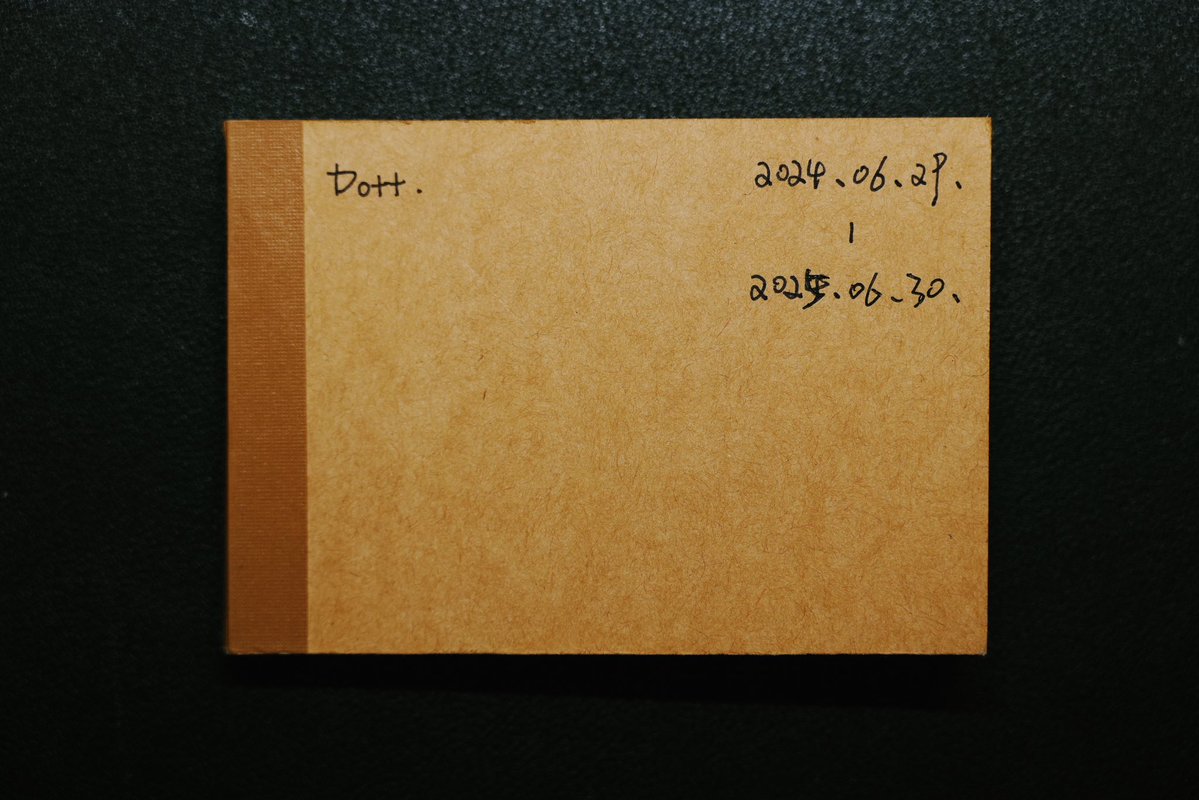 Dott.
2024.06.29.
|
2025.06.30.